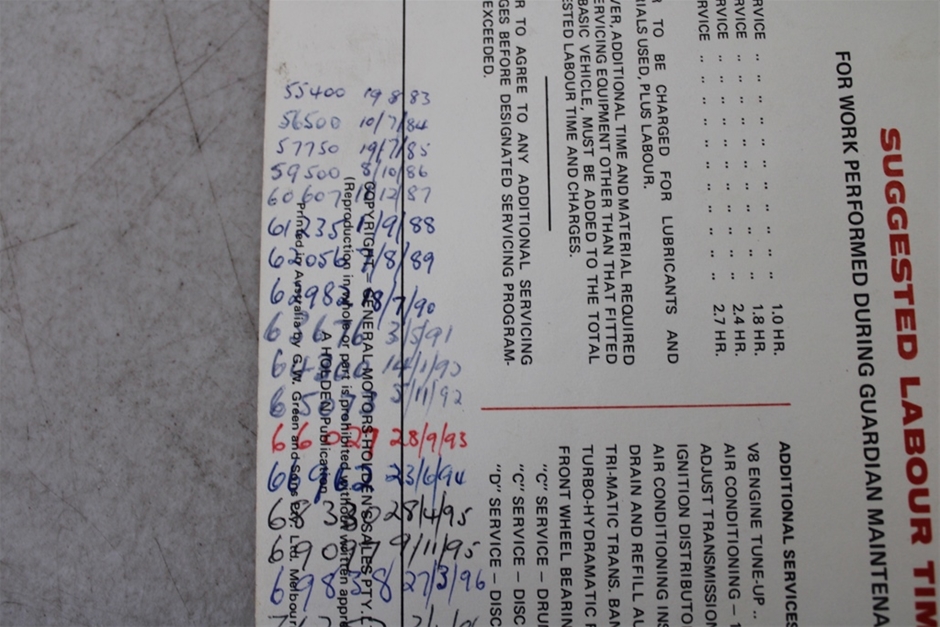 SUGGESTED LABOUR TIM
FOR WORK PERFORMED DURING GUARDIAN MAINTENA
RVICE .. .. .. .. .. .. .. 1.0 HR.
RVICE .. .. .. .. .. .. .. 1.8 HR.
RVICE .. .. .. .. .. .. .. 2.4 HR.
RVICE .. .. .. .. .. .. .. 2.7 HR.
R TO BE CHARGED FOR LUBRICANTS AND
IALS USED, PLUS LABOUR.
VER, ADDITIONAL TIME AND MATERIAL REQUIRED
ERVICING EQUIPMENT OTHER THAN THAT FITTED
BASIC VEHICLE, MUST BE ADDED TO THE TOTAL
ESTED LABOUR TIME AND CHARGES.
R TO AGREE TO ANY ADDITIONAL SERVICING
GES BEFORE DESIGNATED SERVICING PROGRAM-
EXCEEDED.
ADDITIONAL SERVICES
V8 ENGINE TUNE-UP ..
AIR CONDITIONING – 1
ADJUST TRANSMISSION
IGNITION DISTRIBUTO
AIR CONDITIONING INS
DRAIN AND REFILL AU
TRI-MATIC TRANS. BAN
TURBO-HYDRAMATIC F
FRONT WHEEL BEARIN
"C" SERVICE – DRUM
"C" SERVICE – DISC
"D" SERVICE – DISC
COPYRIGHT – GENERAL MOTORS-HOLDEN'S SALES PTY. L
(Reproduction in whole or part is prohibited without written appro
A HOLDEN Publication
Printed in Australia by G.W. Green and Sons Pty. Ltd. Melbour
55400 19 8 83
56500 10/7/84
57750 19/7/85
59500 8/10/86
60607 12/87
61235 /9/88
62056 /8/89
6298 8/7/90
3/5/91
14/1/92
/11/92
66027 28/9/93
23/6/94
28/4/95
9/11/95
69838 27/3/96